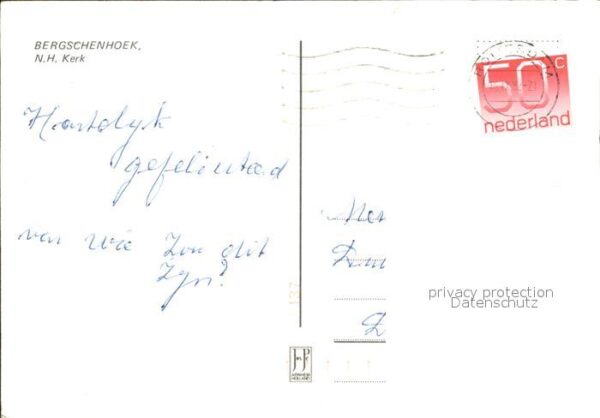 BERGSCHENHOEK,
N.H. Kerk
Hartelyk
gefeliciteerd
van wie zou dit
zyn?
50 c
nederland
137
JosPé
ARNHEM
HOLLAND
privacy protection
Datenschutz